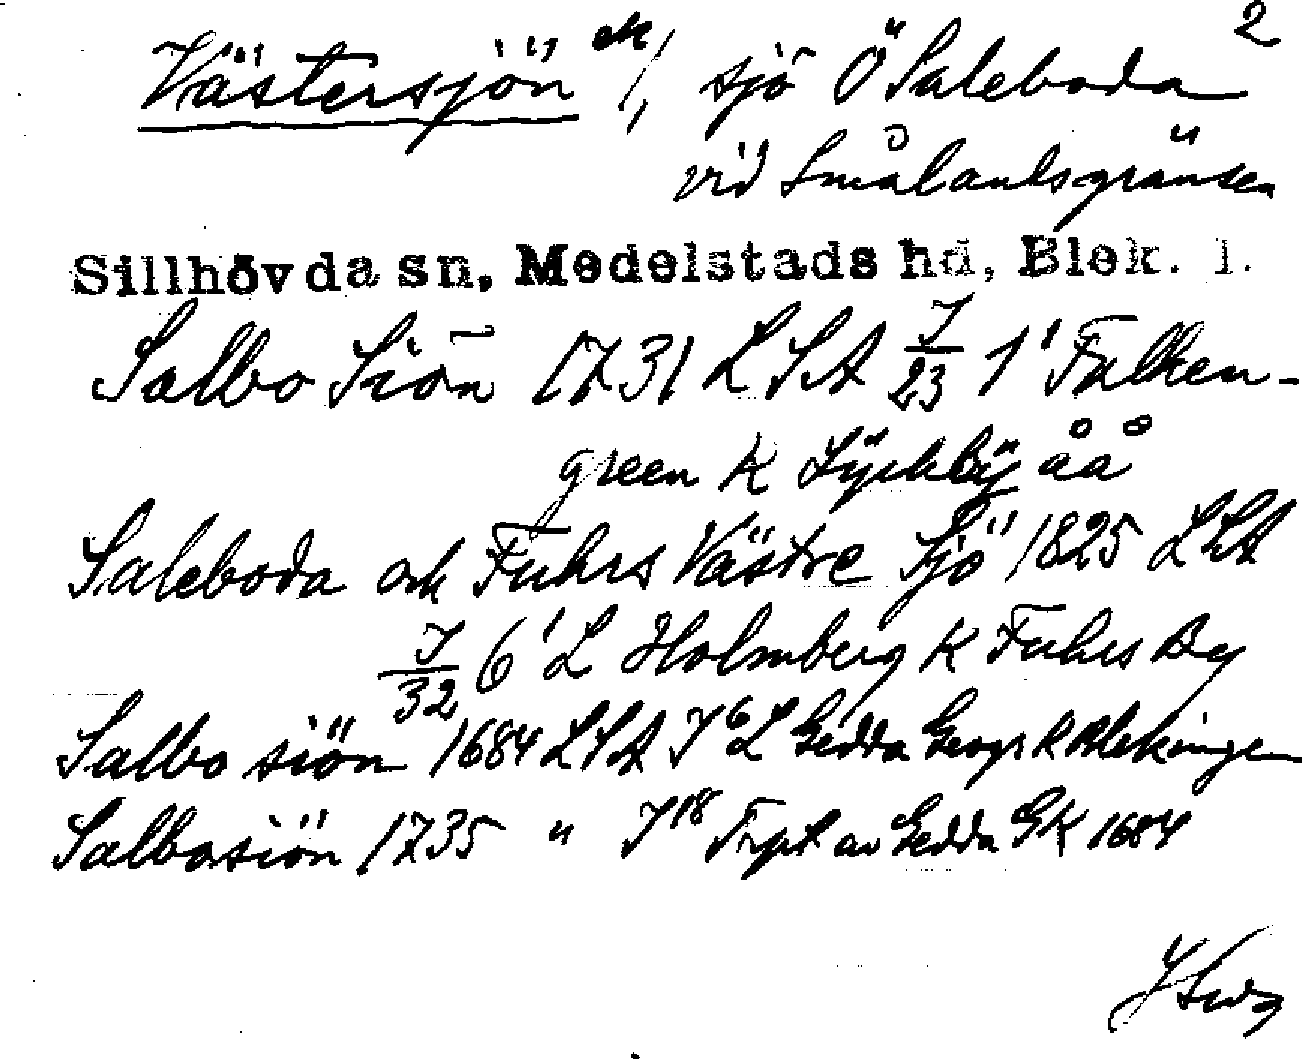 2
Västersjön ek/, sjö Ö Saleboda
vid Smålandsgränsen
Sillhövda sn, Medelstads hd, Blek. l.
Salbo Siön 1731 LSA J/23 1' Falken-
green K Lÿckbÿ åå
Saleboda och Fuhrs Västre Sjö 1825 LSA
J/32 6' L Holmberg K Fuhrs By
Salbo siön 1684 LSA J 6 L Gedda Geogr K Blekinge
Salbosiön 1735 " J 18 av Gedda GK 1684